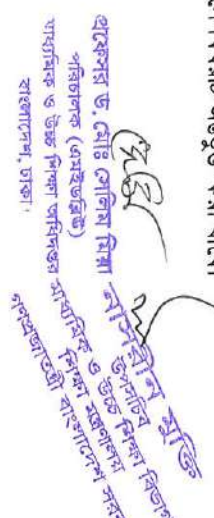 প্রফেসর ড. মোঃ সেলিম মিয়া
পরিচালক (এমইউবি)
মাধ্যমিক ও উচ্চ শিক্ষা অধিদপ্তর
বাংলাদেশ, ঢাকা।
নাসরীন মুক্তি
উপসচিব
মাধ্যমিক ও উচ্চ শিক্ষা বিভাগ
শিক্ষা মন্ত্রণালয়
গণপ্রজাতন্ত্রী বাংলাদেশ